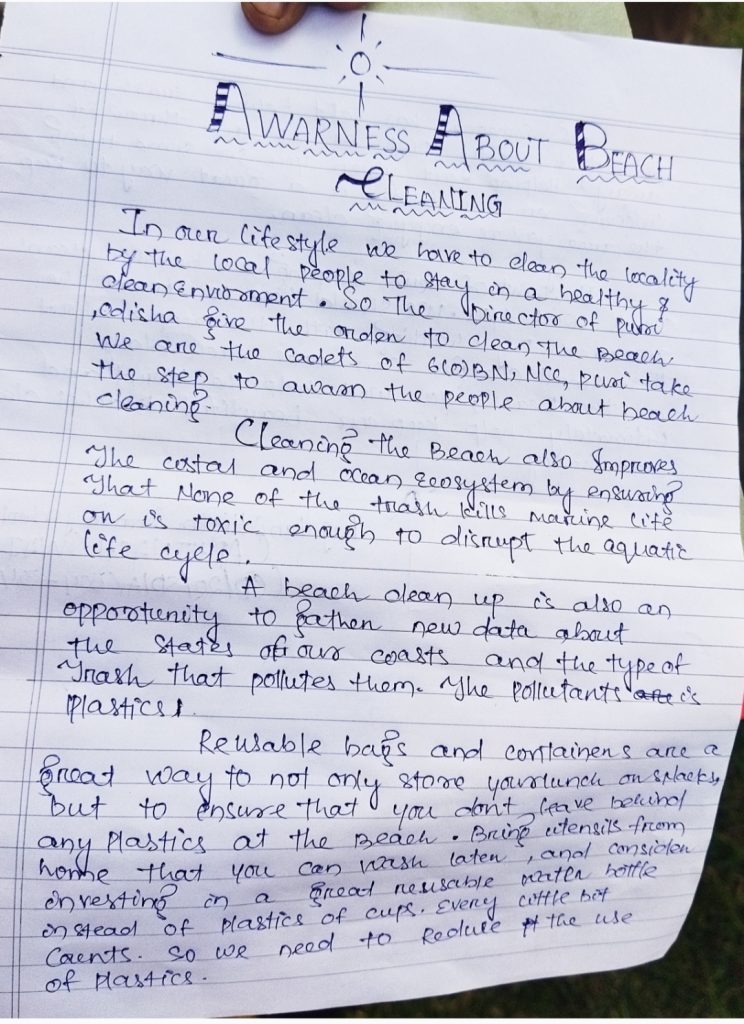 AWARNESS ABOUT BEACH
CLEANING
In our lifestyle we have to clean the locality
by the local people to stay in a healthy &
clean Enviorment. So The Director of puri
,odisha give the order to clean The Beach.
We are the cadets of 6(O)BN, NCC, puri take
the step to awarn the people about beach
cleaning.
Cleaning the Beach also Improves
The costal and ocean Ecosystem by ensuring
That None of the trash kills marine life
or is toxic enough to disrupt the aquatic
life cycle.
A beach clean up is also an
opportunity to gather new data about
the states of our coasts and the type of
Trash that pollutes them. The Pollutants is
Plastics.
Reusable bags and containers are a
great way to not only store your lunch or snacks,
but to ensure that you dont leave behind
any Plastics at the Beach. Bring utensils from
home that you can wash later, and consider
investing in a great reusable water bottle
instead of plastics of cups. Every little bit
Counts. So we need to Reduce the use
of Plastics.